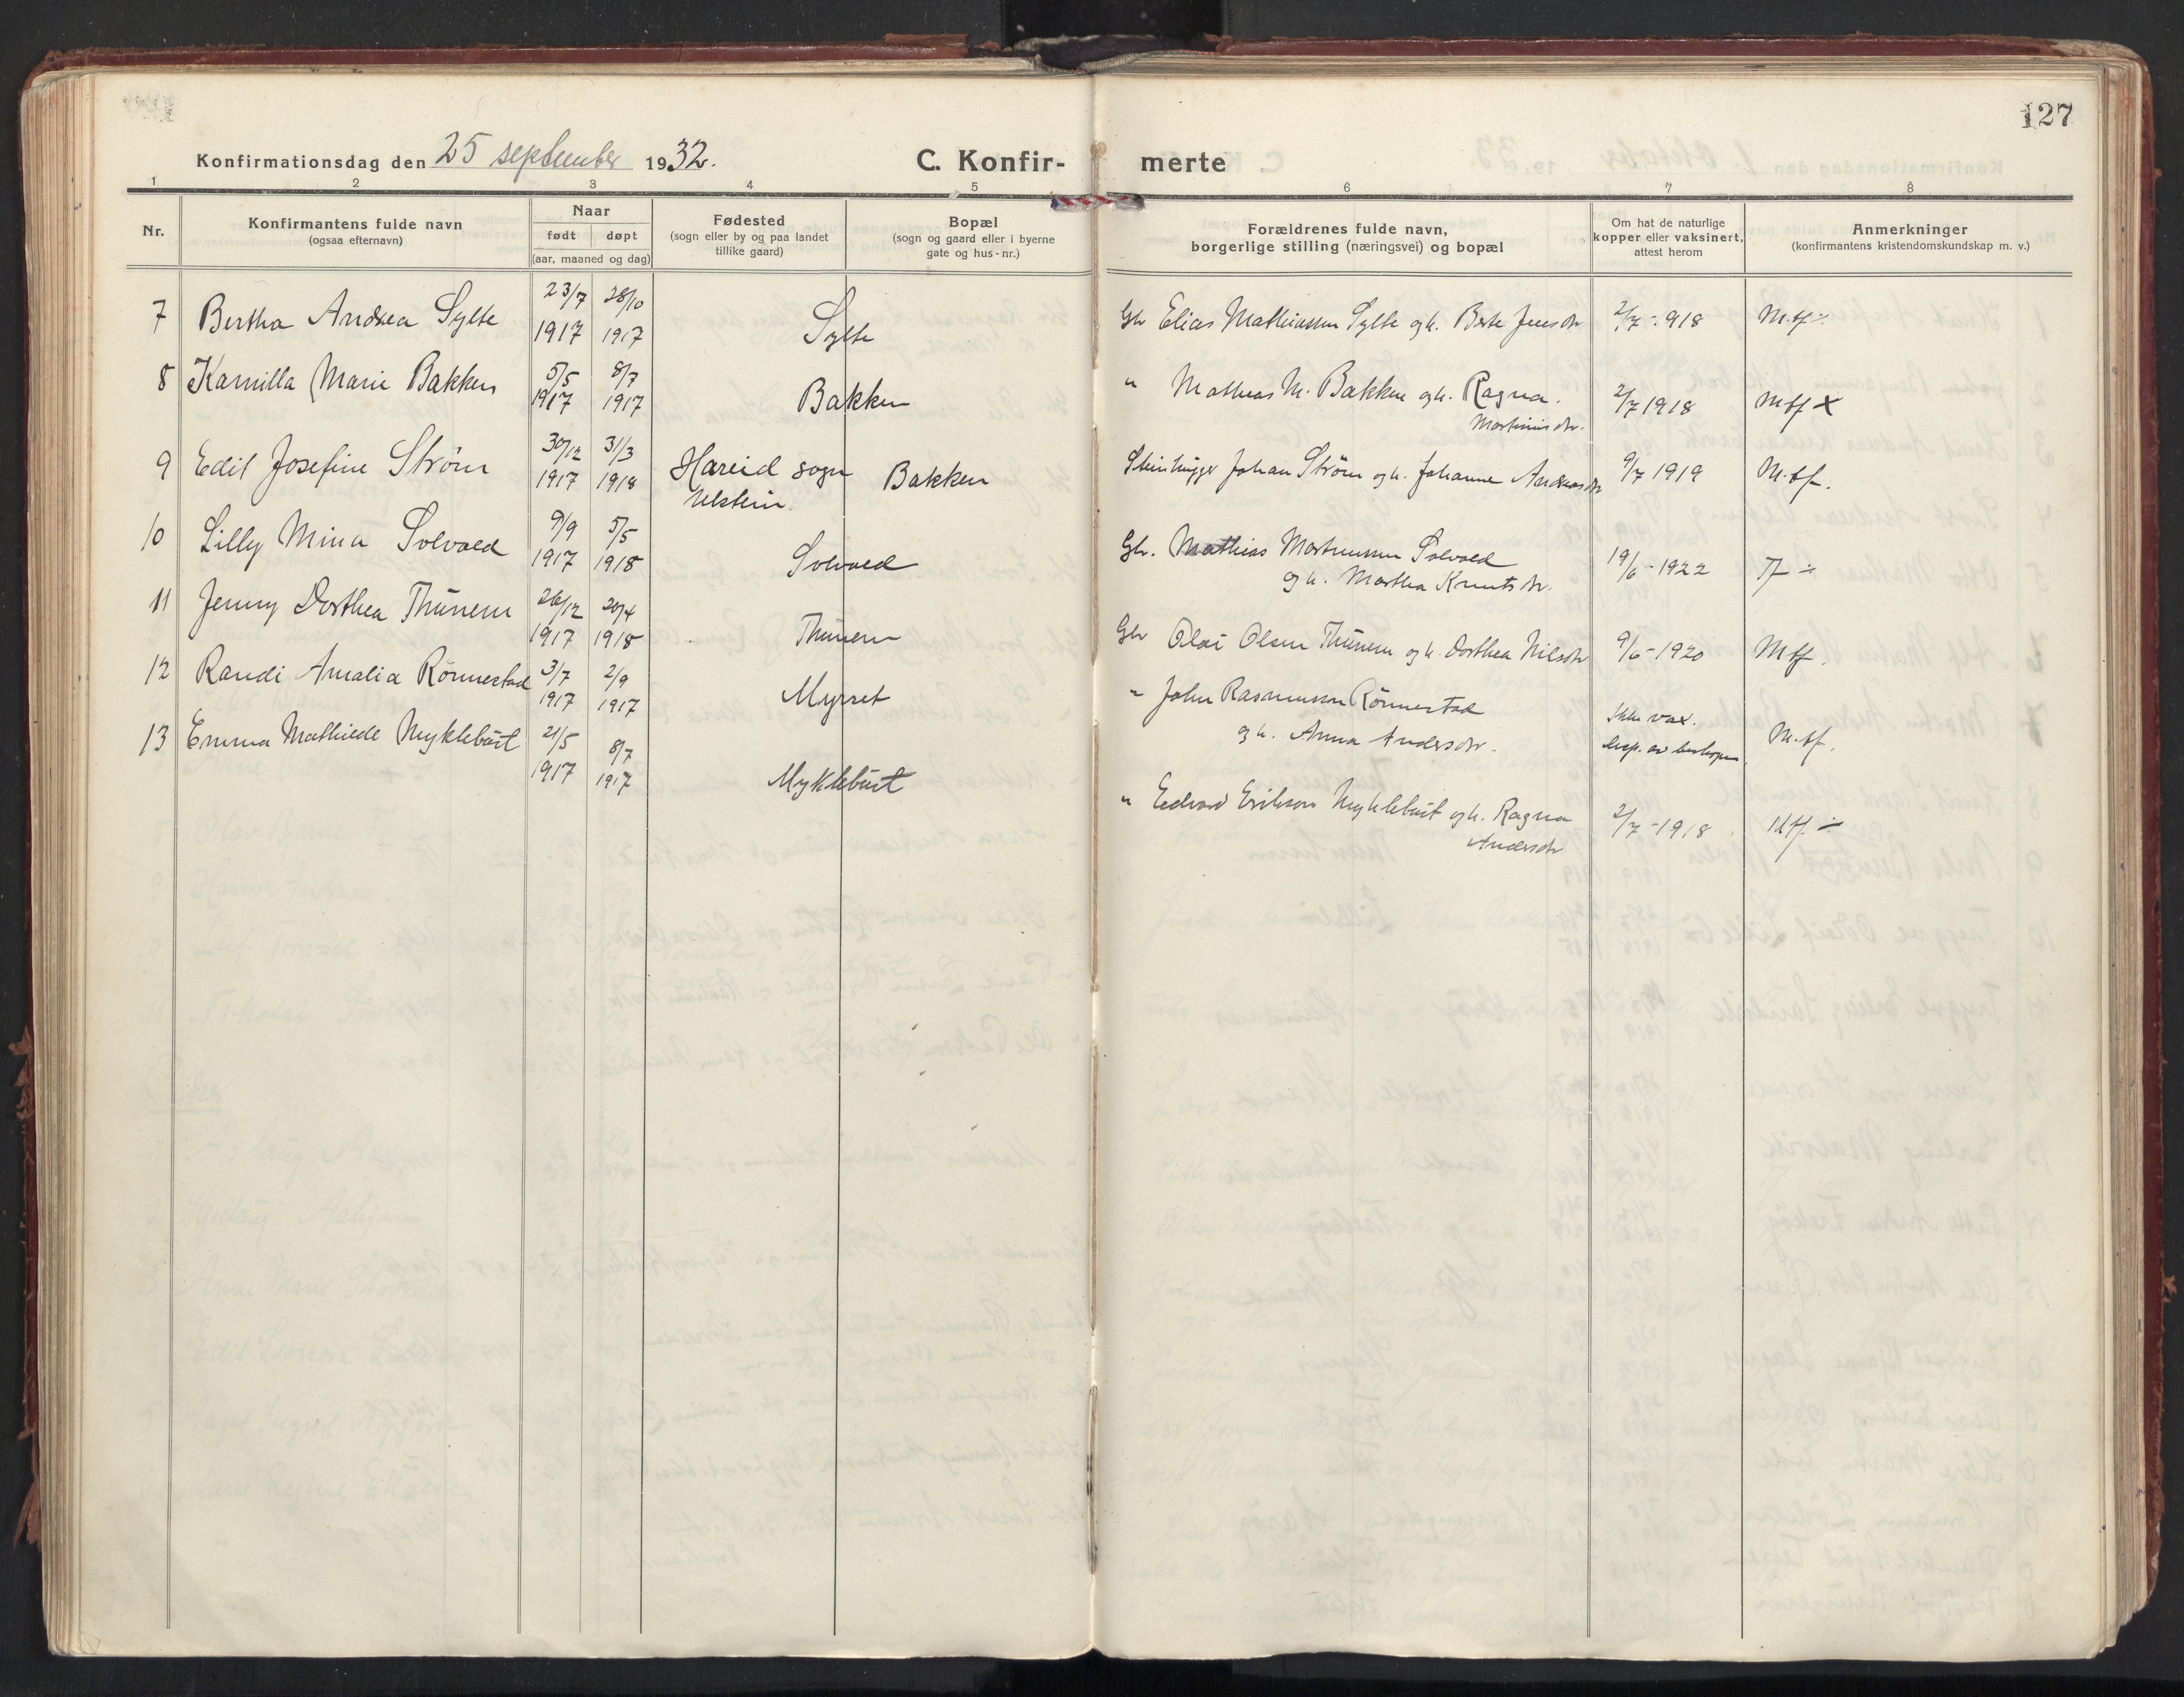 127
Konfirmationsdag den 25 september 1932.
C. Konfir-merte
1 2 3 4 5 6 7 8
Nr.
Konfirmantens fulde navn
(ogsaa efternavn)
Naar
født døpt
(aar, maaned og dag)
Fødested
(sogn eller by og paa landet
tillike gaard)
Bopæl
(sogn og gaard eller i byerne
gate og hus-nr.)
Forældrenes fulde navn,
borgerlige stilling (næringsvei) og bopæl
Om hat de naturlige
kopper eller vaksinert,
attest herom
Anmerkninger
(konfirmantens kristendomskundskap m. v.)
7 Bertha Andrea Sylte 23/7 1917 28/10 1917 Sylte Gbr Elias Mathiassen Sylte og h. Berte Jensdr 2/7-918 M.tf ÷
8 Kamilla Marie Bakken 5/5 1917 8/7 1917 Bakken " Mathias M. Bakken og h. Ragna
Martinusdr. 2/7 1918 M tf x
9 Edit Josefine Ström 30/12 1917 31/3 1918 Hareid sogn
Ulstein. Bakken Steinhugger Johan Ström og h. Johanne Andreasdr 9/7 1919 M.tf.
10 Lilly Mina Solvold 9/9 1917 5/5 1918 Solvold Gbr. Mathias Martinussen Solvold
og h. Martha Knutsdr. 19/6-1922 Tf ÷
11 Jenny Dorthea Thunem 26/12 1917 20/4 1918 Thunem Gbr Olai Olsen Thunem og h. Dorthea Nilsdr 9/6-1920 Mtf.
12 Randi Amalia Rönnestad 3/7 1917 2/9 1917 Myrset " John Rasmussen Rönnestad
og h. Anna Andersdr. Ikke vax.
disp. av biskopen M.tf.
13 Emma Mathilde Myklebust 21/5 1917 8/7 1917 Myklebust " Edvard Eriksen Myklebust og h. Ragna
Andersdr 2/7-1918 Mtf. ÷